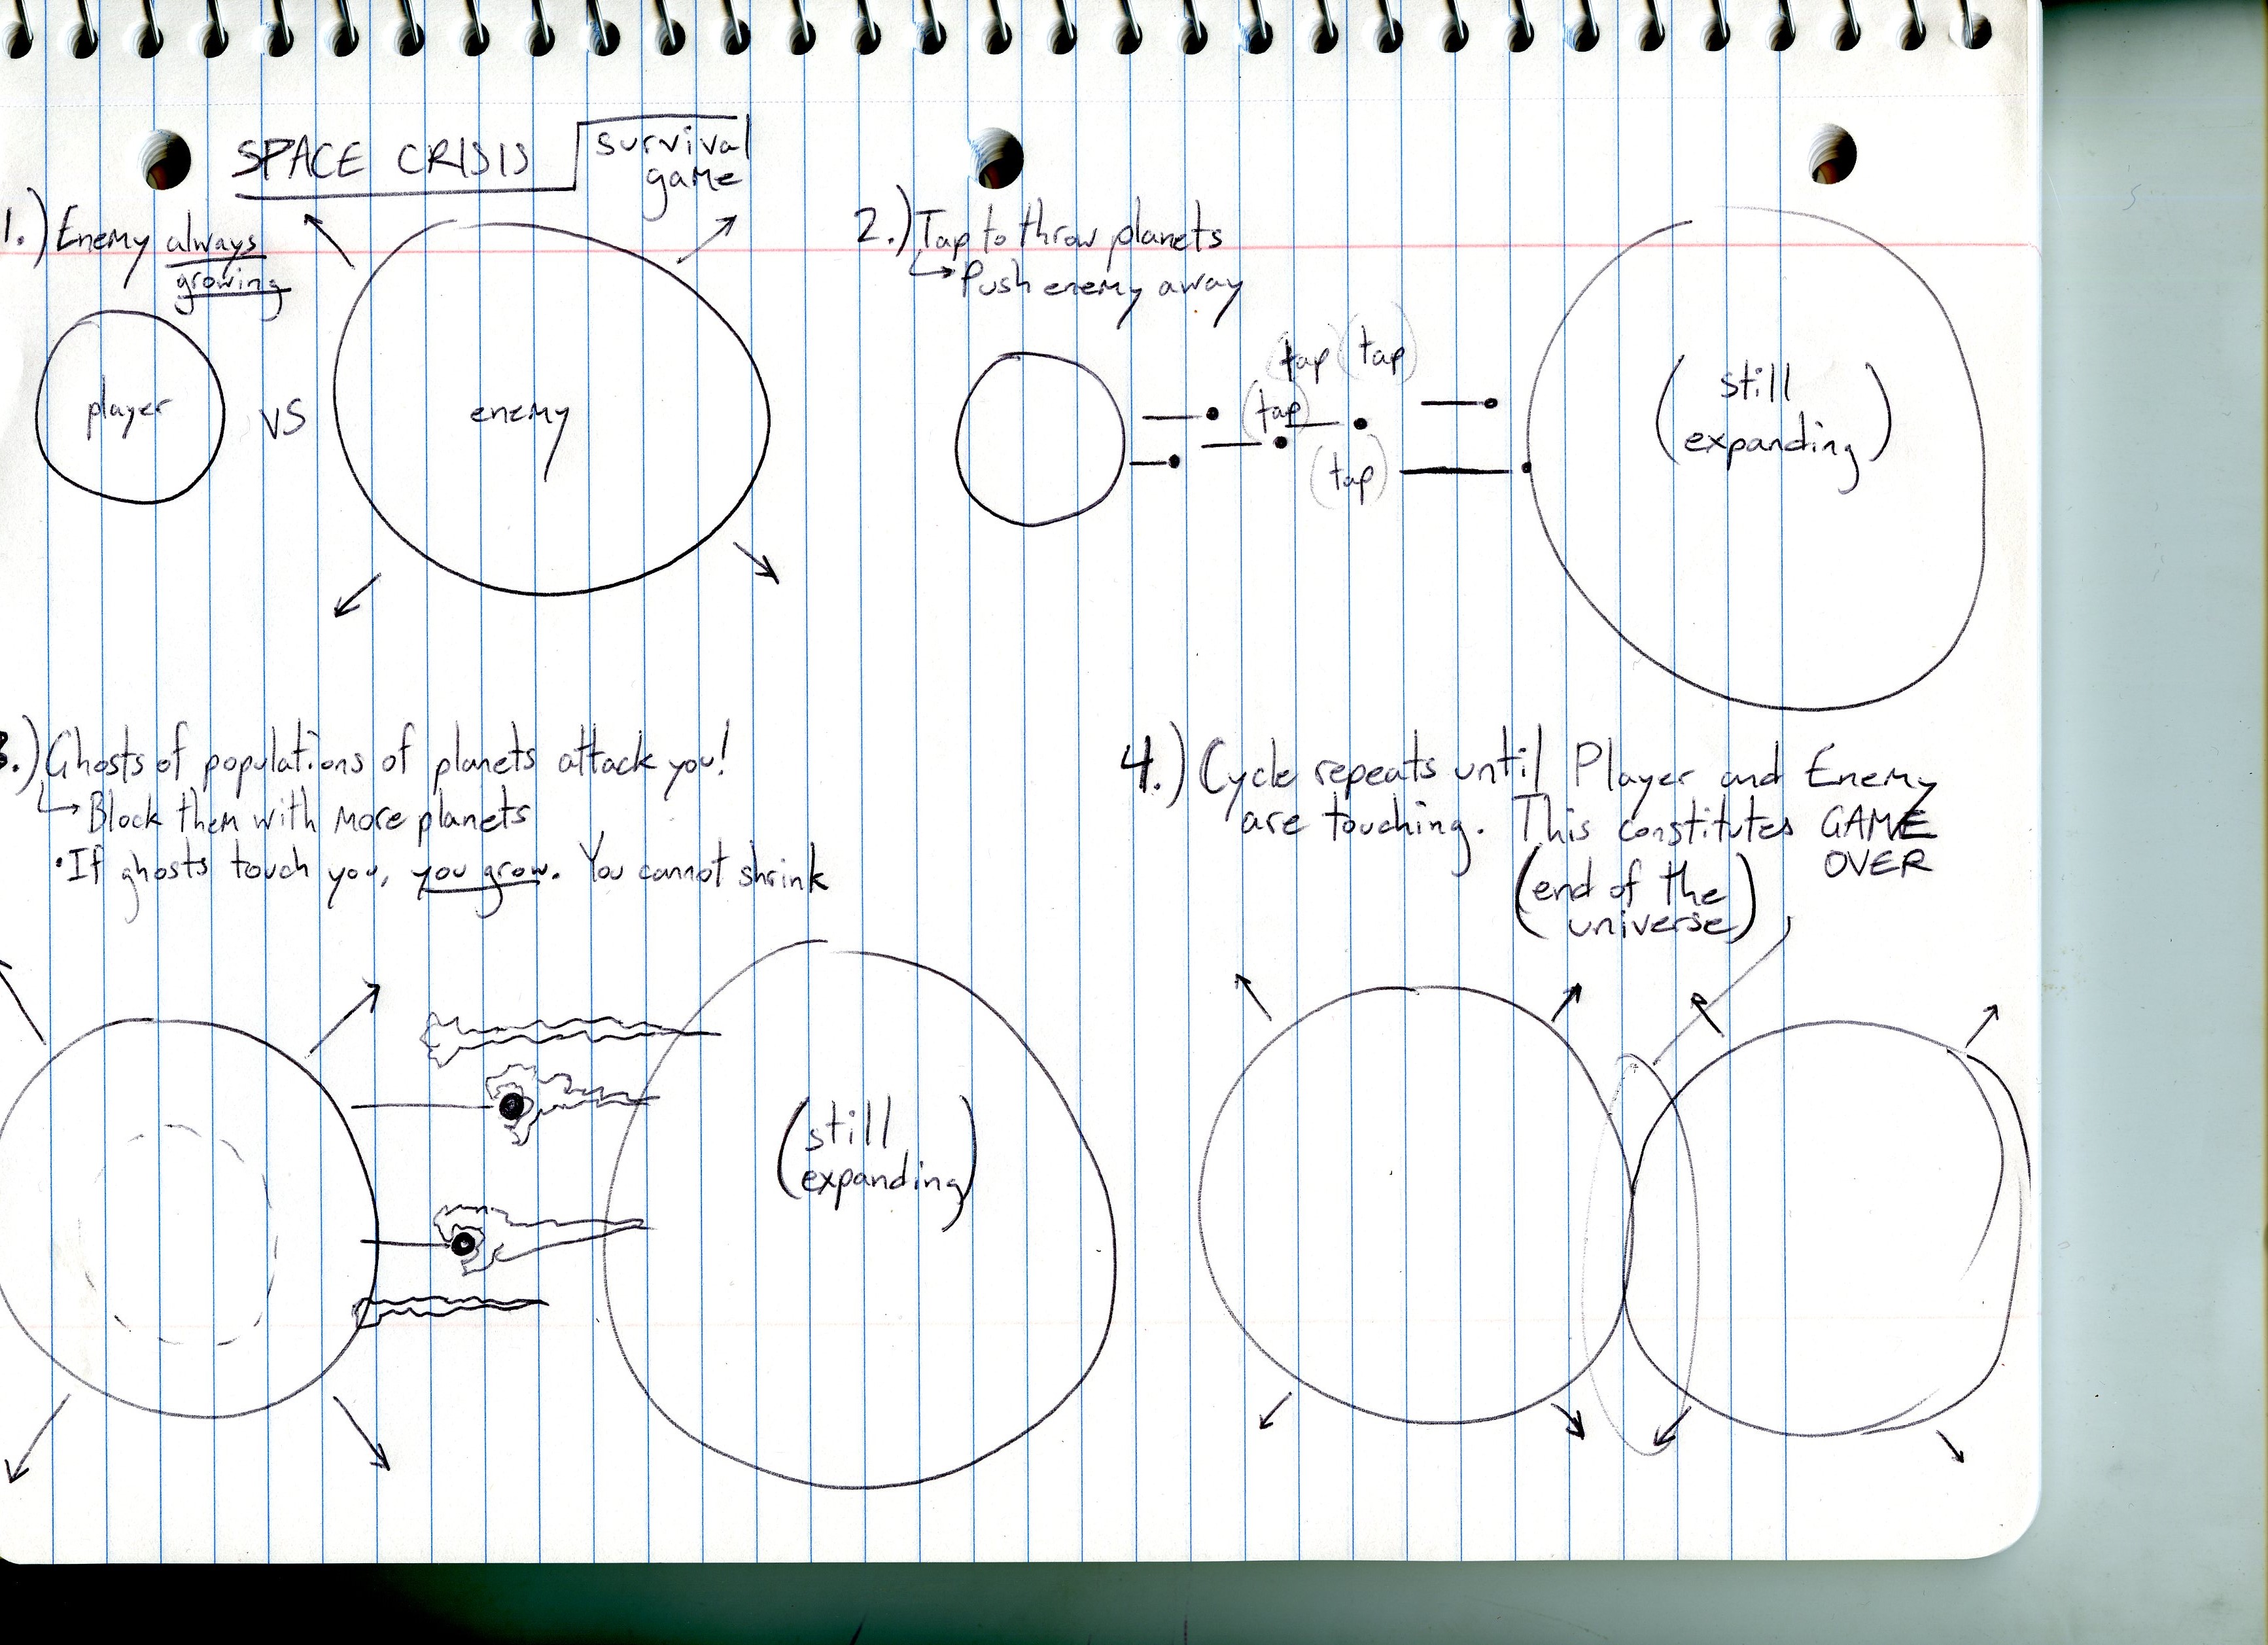 SPACE CRISIS
survival
game
1.) Enemy always
growing
player
VS
enemy
2.) Tap to throw planets
↳ Push enemy away
tap (tap)
(tap)
(tap)
(still
expanding)
3.) Ghosts of populations of planets attack you!
↳ Block them with more planets
• If ghosts touch you, you grow. You cannot shrink
(still
expanding)
4.) Cycle repeats until Player and Enemy
are touching. This constitutes GAME
OVER
(end of the
universe)